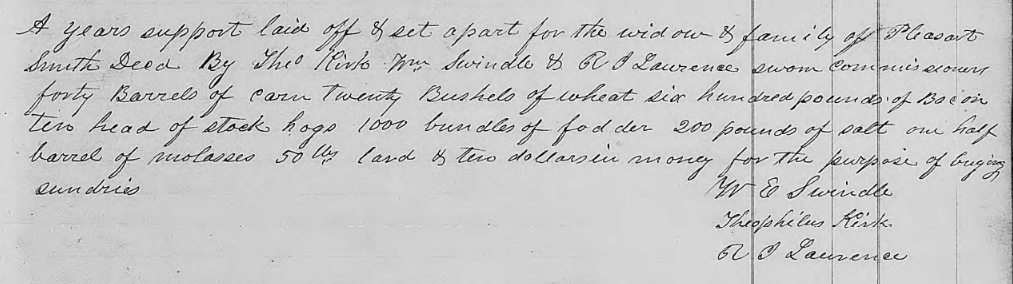 A years support laid off & set apart for the widow & family of Pleasant
Smith Decd By Theo Kirk Wm Swindle & R J Laurence sworn commissioners
forty Barrels of corn twenty Bushels of wheat six hundred pounds of Bacon
ten head of stock hogs 1000 bundles of fodder 200 pounds of salt one half
barrel of molasses 50 lbs lard & ten dollars in money for the purpose of buying
sundries
W E Swindle
Theophilus Kirk
R J Laurence